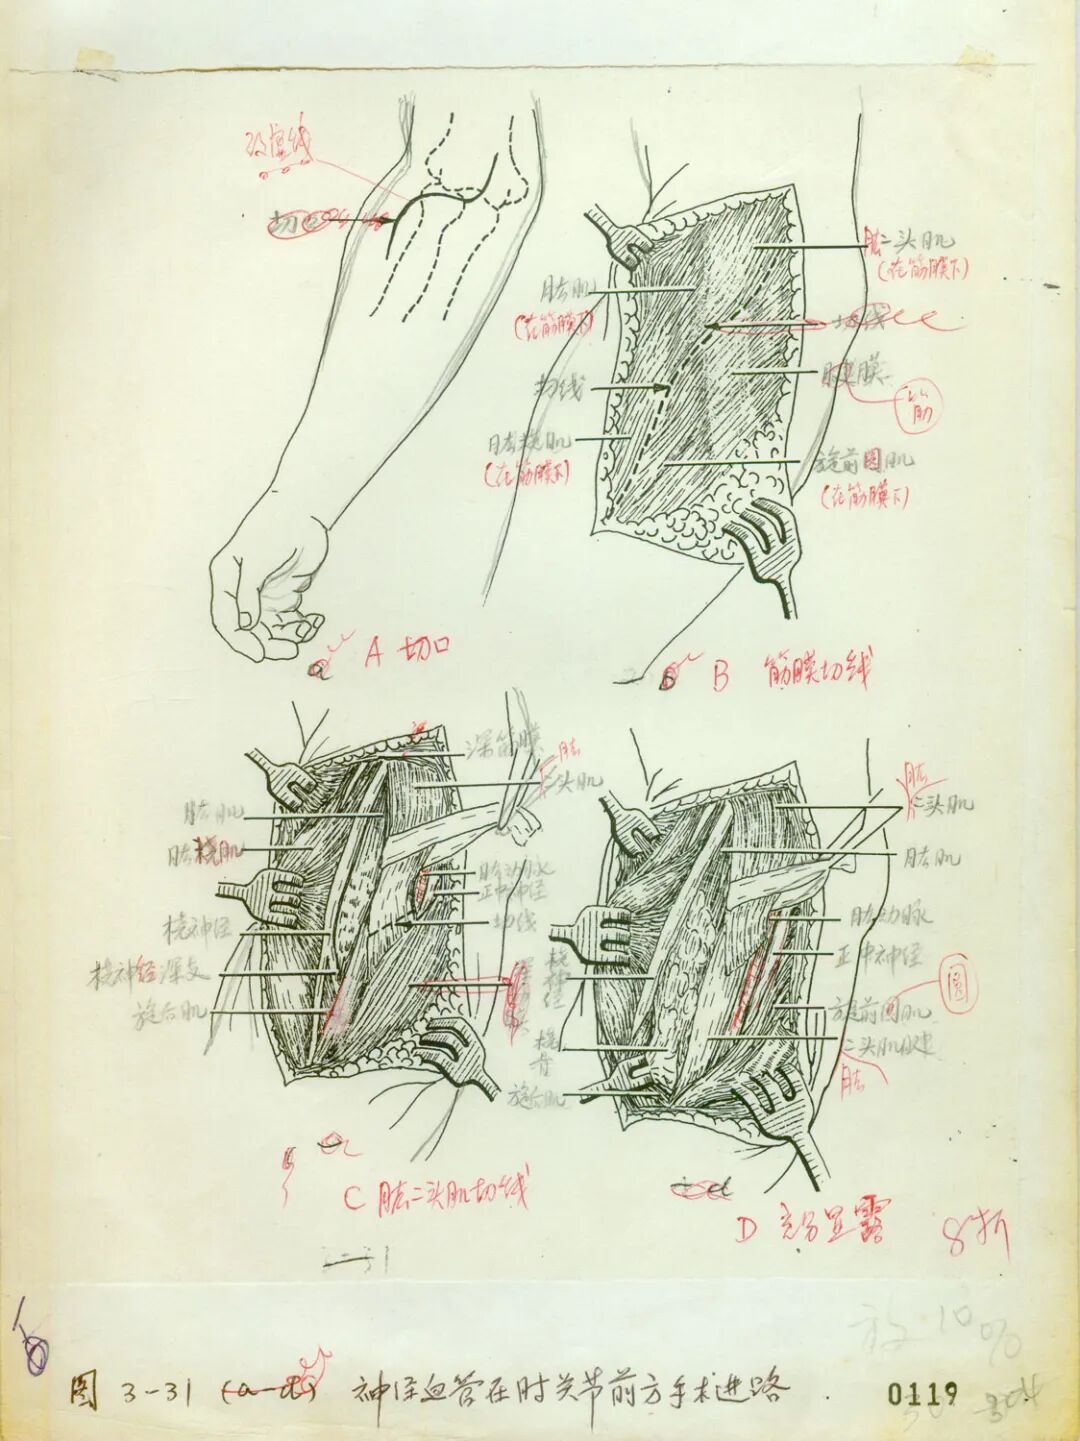 切口
肱二头肌
(在筋膜下)
肱肌
(在筋膜下)
切线
切线
腱膜
筋
肱桡肌
(在筋膜下)
旋前圆肌
(在筋膜下)
a
A 切口
b
B 筋膜切线
深筋膜
肱
二头肌
肱肌
肱桡肌
肱动脉
正中神经
切线
桡神经
桡神经深支
旋后肌
C 肱二头肌切线
肱
二头肌
肱肌
肱动脉
正中神经
桡神经
圆
旋前圆肌
二头肌腱
肱
桡骨
旋后肌
d
D 充分显露
8折
3-31
放10%
图 3-31 (a-d) 神经血管在肘关节前方手术进路
0119